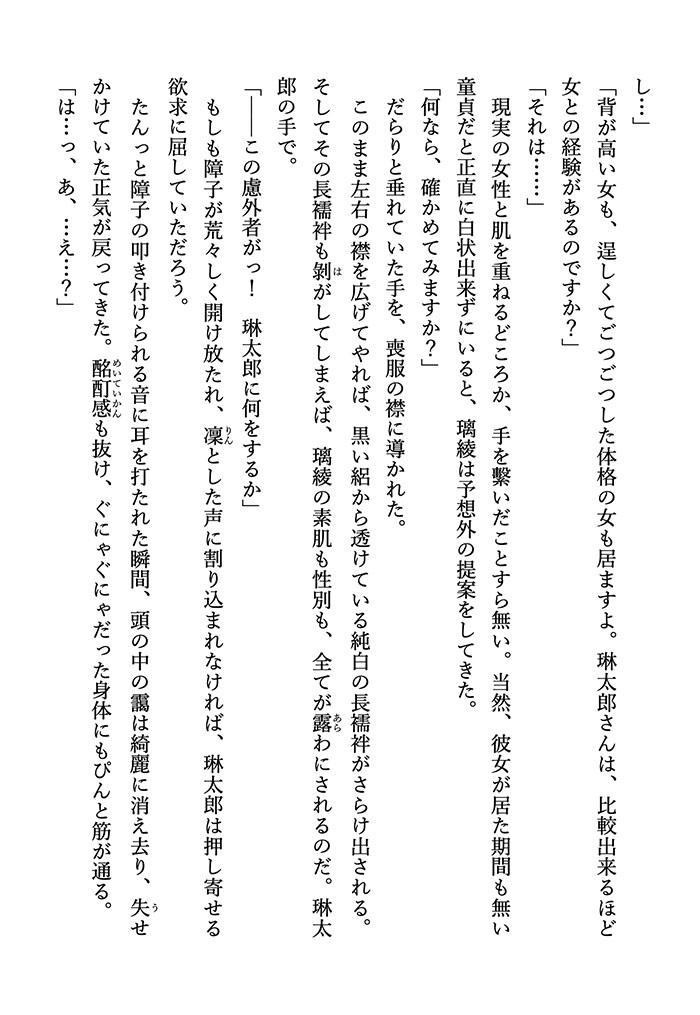 し…」
「背が高い女も、逞しくてごつごつした体格の女も居ますよ。琳太郎さんは、比較出来るほど
女との経験があるのですか？」
「それは……」
現実の女性と肌を重ねるどころか、手を繋いだことすら無い。当然、彼女が居た期間も無い
童貞だと正直に白状出来ずにいると、璃綾は予想外の提案をしてきた。
「何なら、確かめてみますか？」
だらりと垂れていた手を、喪服の襟に導かれた。
このまま左右の襟を広げてやれば、黒い絽から透けている純白の長襦袢がさらけ出される。
そしてその長襦袢も剝がしてしまえば、璃綾の素肌も性別も、全てが露わにされるのだ。琳太
郎の手で。
「――この慮外者がっ！　琳太郎に何をするか」
もしも障子が荒々しく開け放たれ、凜とした声に割り込まれなければ、琳太郎は押し寄せる
欲求に屈していただろう。
たんっと障子の叩き付けられる音に耳を打たれた瞬間、頭の中の靄は綺麗に消え去り、失せ
かけていた正気が戻ってきた。酩酊感も抜け、ぐにゃぐにゃだった身体にもぴんと筋が通る。
「は…っ、あ、…え…？」